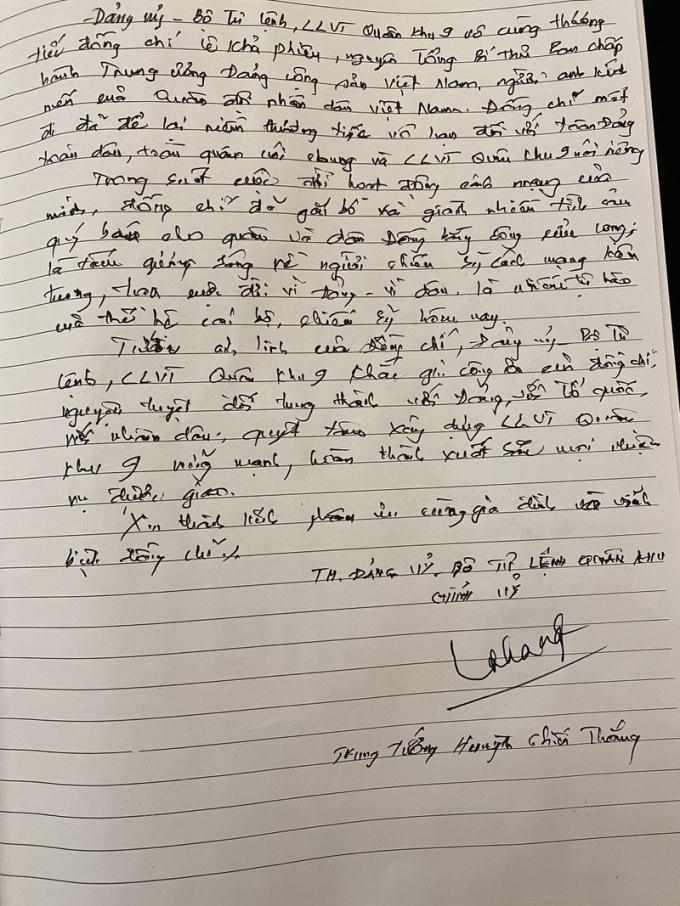 - Đảng ủy - Bộ Tư lệnh, LLVT Quân khu 9 vô cùng thương
tiếc đồng chí Lê Khả Phiêu, nguyên Tổng Bí thư Ban chấp
hành Trung ương Đảng cộng sản Việt Nam, người anh kính
mến của Quân đội nhân dân Việt Nam. Đồng chí mất
đi đã để lại niềm thương tiếc vô hạn đối với toàn Đảng
toàn dân, toàn quân nói chung và LLVT Quân khu 9 nói riêng
Trong suốt cuộc đời hoạt động cách mạng của
mình, đồng chí đã gắn bó và giành nhiều tình cảm
quý báu cho quân và dân Đồng bằng sông cửu long;
là tấm gương sáng về người chiến sỹ cách mạng kiên
trung, trọn cuộc đời vì Đảng - vì dân. là niềm tự hào
của thế hệ cán bộ, chiến sỹ hôm nay.
Trước anh linh của đồng chí, Đảng ủy - Bộ Tư
lệnh, LLVT Quân khu 9 khắc ghi công ơn của đồng chí,
nguyện tuyệt đối trung thành với Đảng, với Tổ quốc,
với nhân dân; quyết tâm xây dựng LLVT Quân
khu 9 vững mạnh, hoàn thành xuất sắc mọi nhiệm
vụ được giao.
Xin thành kính phân ưu cùng gia đình và vĩnh
biệt đồng chí./.
TM. ĐẢNG UỶ, BỘ TƯ LỆNH QUÂN KHU
CHÍNH UỶ
Trung tướng Huỳnh Chiến Thắng